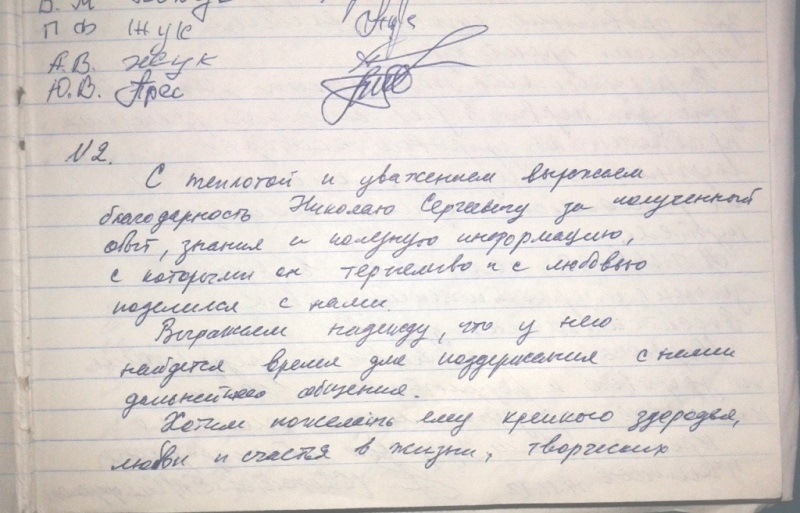 В. М
П Ф Жук
А.В. Жук
Ю.В. Прас
N 2.
С теплотой и уважением выражаем
благодарность Николаю Сергеевичу за полученный
опыт, знания и полезную информацию,
с которыми он терпеливо и с любовью
поделился с нами.
Выражаем надежду, что у него
найдется время для поддержания с нами
дальнейшего общения.
Хотим пожелать ему крепкого здоровья,
любви и счастья в жизни, творческих